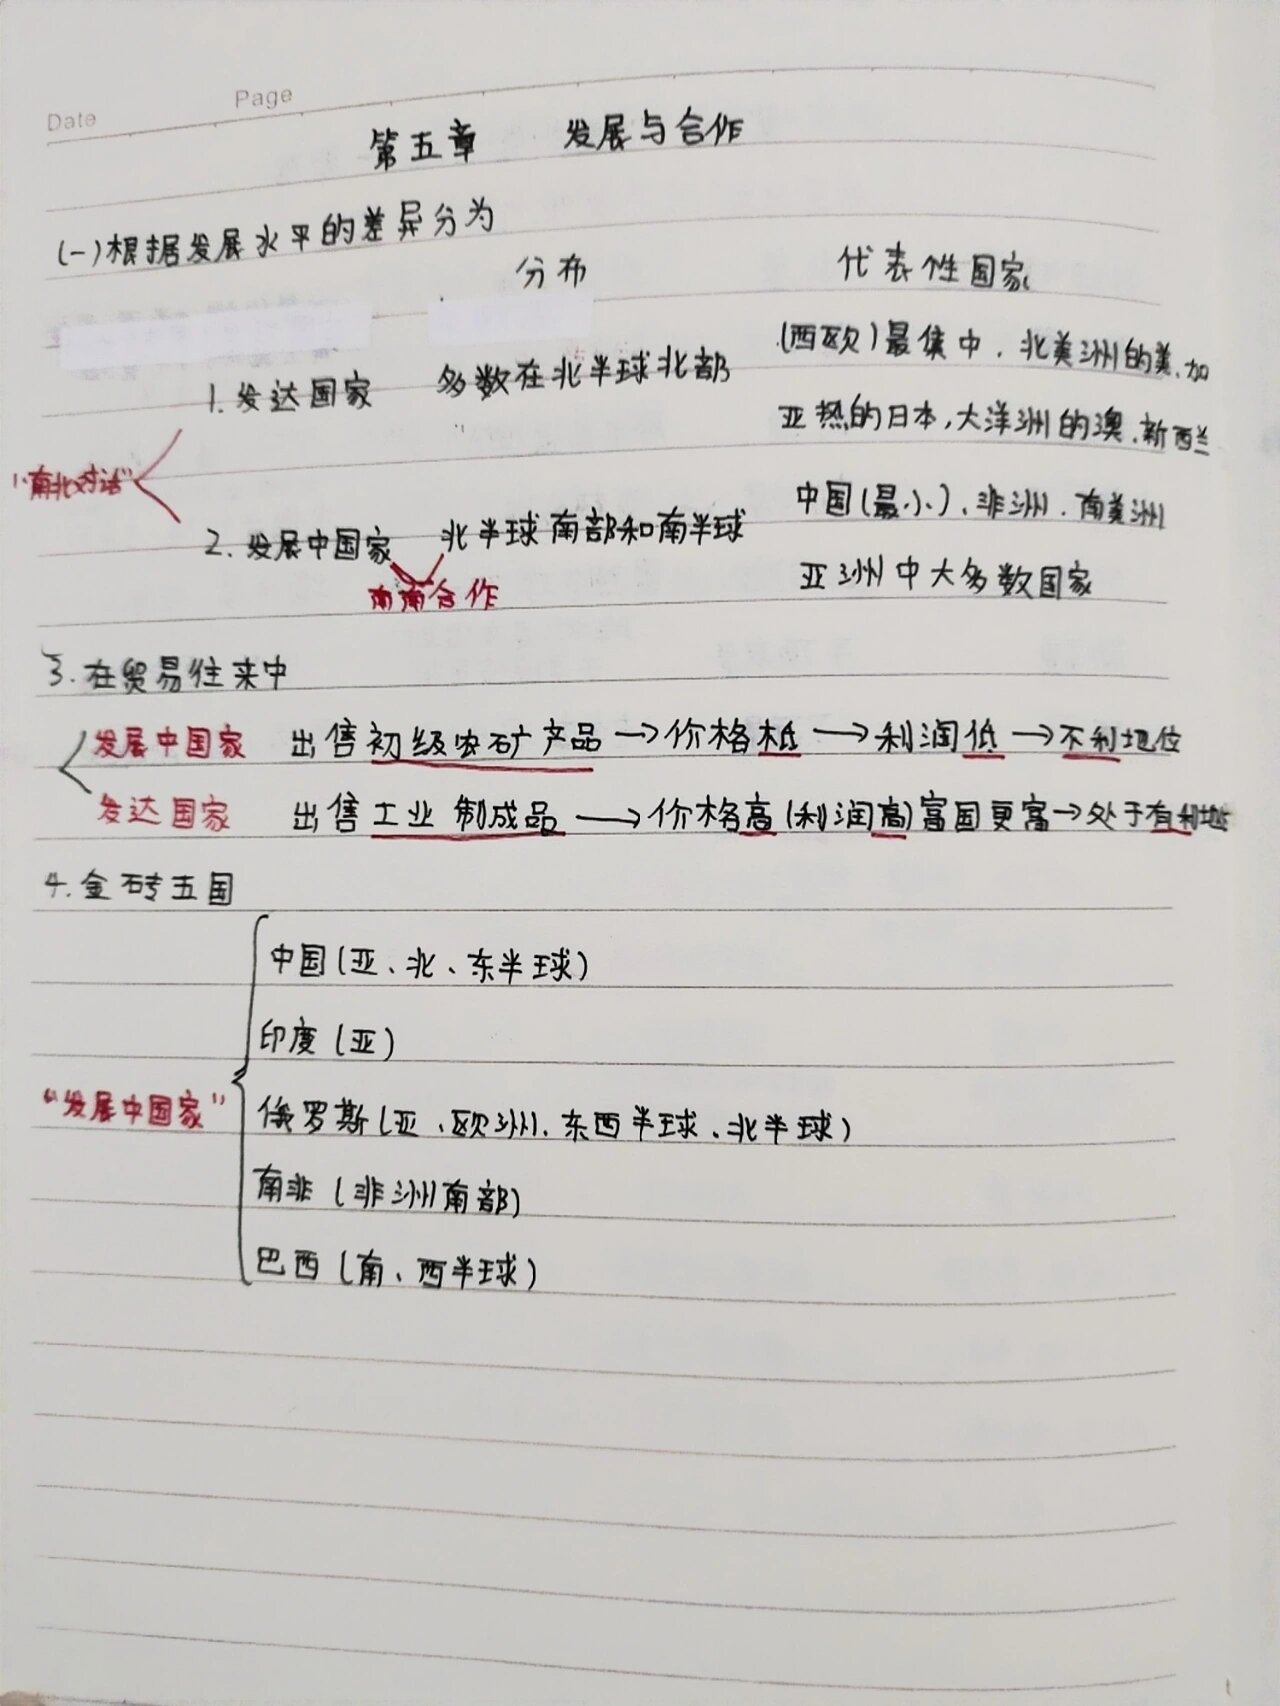 Date Page
第五章 发展与合作
(一)根据发展水平的差异分为
分布 代表性国家
1.发达国家 多数在北半球北部 (西欧)最集中、北美洲的美、加
亚热的日本,大洋洲的澳、新西兰
"南北对话"
2.发展中国家 北半球南部和南半球 中国(最小)、非洲、南美洲
南南合作 亚洲中大多数国家
3.在贸易往来中
发展中国家 出售初级农矿产品→价格低→利润低→不利地位
发达国家 出售工业制成品→价格高(利润高)富国更富→处于有利地
4.金砖五国
中国(亚、北、东半球)
印度(亚)
"发展中国家" 俄罗斯(亚、欧洲、东西半球、北半球)
南非(非洲南部)
巴西(南、西半球)